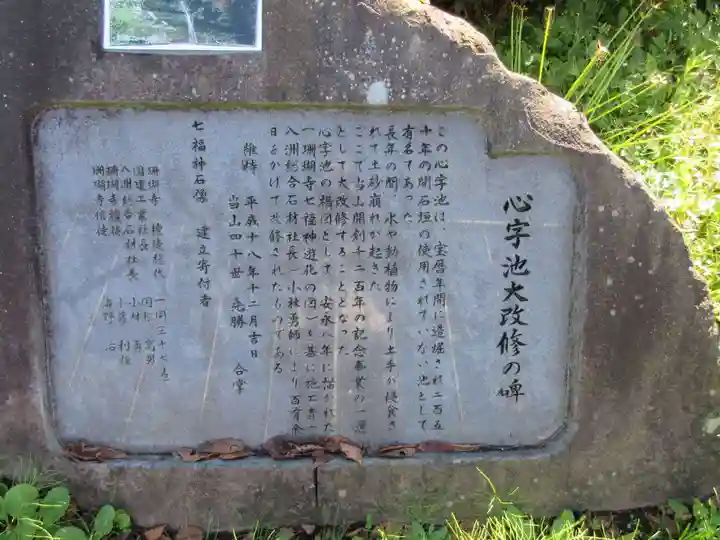 心字池大改修の碑
この心字池は、宝暦年間に造堀され二百五
十年の間石垣の使用されていない池として
有名であった。
長年の間、水や動植物により土手が侵食さ
れて土砂崩れが起きた。
ここで当山開創千二百年の記念事業の一環
として大改修することとなった。
心字池の構図として、安永八年に描かれた
「珊瑚寺七福神遊花の図」を基に施工者一
八洲総合石材社長「小林勇師により百有余
日をかけて改修されたものである
維時 平成十八年十二月吉日
当山四十世 亮勝 合掌
七福神石像 建立寄付者
珊瑚寺 檀徒総代 一同三十七名
国建工業社長
八洲総合石材社長 小林 勇
珊瑚寺檀徒
珊瑚寺信徒